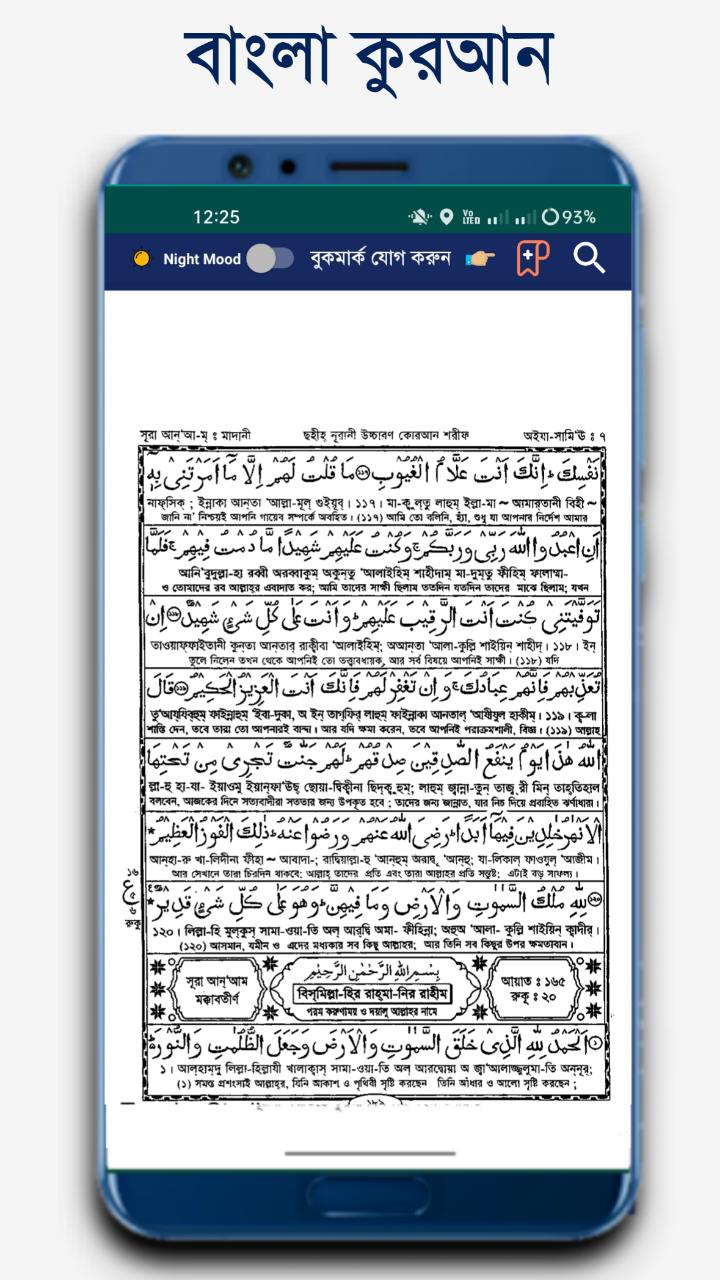 বাংলা কুরআন
12:25 Vo LTED 93%
Night Mood বুকমার্ক যোগ করুন
সূরা আন্'আ-ম্ ঃ মাদানী ছহীহ্ নূরানী উচ্চারণ কোরআন শরীফ অইযা-সামি'ঊ ঃ ৭
نَفْسِكَ ؕ اِنَّكَ اَنْتَ عَلَّامُ الْغُيُوْبِ ﴿۱۱۶﴾ مَا قُلْتُ لَهُمْ اِلَّا مَاۤ اَمَرْتَنِيْ بِهٖۤ
নাফ্সিক্ ; ইন্নাকা আন্তা 'আল্লা-মুল্ গুইয়ূব্। ১১৭। মা-কু্ল্তু লাহুম্ ইল্লা-মা ~ আমারতানী বিহী ~
জানি না' নিশ্চয়ই আপনি গায়েব সম্পর্কে অবহিত। (১১৭) আমি তো বলিনি, হ্যাঁ, শুধু যা আপনার নির্দেশ আমার
اَنِ اعْبُدُوا اللّٰهَ رَبِّيْ وَرَبَّكُمْ ۚ وَكُنْتُ عَلَيْهِمْ شَهِيْدًا مَّا دُمْتُ فِيْهِمْ ۚ فَلَمَّا
আনি'বুদুল্লা-হা রব্বী অরব্বাকুম্ অকুন্তু 'আলাইহিম্ শাহীদাম্ মা-দুম্তু ফীহিম্ ফালাম্মা-
ও তোমাদের রব আল্লাহ্র এবাদাত কর; আমি তাদের সাক্ষী ছিলাম ততদিন যতদিন তাদের মাঝে ছিলাম; যখন
تَوَفَّيْتَنِيْ كُنْتَ اَنْتَ الرَّقِيْبَ عَلَيْهِمْ ؕ وَاَنْتَ عَلٰى كُلِّ شَيْءٍ شَهِيْدٌ ﴿۱۱۷﴾ اِنْ
তাওয়াফ্ফাইতানী কুন্তা আন্তার্ রাক্বীবা 'আলাইহিম্; অআন্তা 'আলা-কুল্লি শাইয়িন্ শাহীদ্। ১১৮। ইন্
তুলে নিলেন তখন থেকে আপনিই তো তত্ত্বাবধায়ক, আর সর্ব বিষয়ে আপনিই সাক্ষী। (১১৮) যদি
تُعَذِّبْهُمْ فَاِنَّهُمْ عِبَادُكَ ۚ وَاِنْ تَغْفِرْ لَهُمْ فَاِنَّكَ اَنْتَ الْعَزِيْزُ الْحَكِيْمُ ﴿۱۱۸﴾ قَالَ
তু'আয্যিব্হুম্ ফাইন্নাহুম্ 'ইবা-দুকা, অ ইন্ তাগ্ফির্ লাহুম্ ফাইন্নাকা আন্তাল্ 'আযীযুল হাকীম্। ১১৯। ক্ব-লা
শাস্তি দেন, তবে তারা তো আপনারই বান্দা। আর যদি ক্ষমা করেন, তবে আপনিই পরাক্রমশালী, বিজ্ঞ। (১১৯) আল্লাহ
اللّٰهُ هٰذَا يَوْمُ يَنْفَعُ الصّٰدِقِيْنَ صِدْقُهُمْ ؕ لَهُمْ جَنّٰتٌ تَجْرِيْ مِنْ تَحْتِهَا
ল্লা-হু হা-যা- ইয়াওমু ইয়ান্ফা'উছ্ ছোয়া-দ্বিক্বীনা ছিদ্কু্ হুম্; লাহুম্ জ্বান্না-তুন্ তাজ্ব্ রী মিন্ তাহ্তিহাল
বলবেন, আজকের দিনে সত্যবাদীরা সততার জন্য উপকৃত হবে ; তাদের জন্য জান্নাত, যার নিচ দিয়ে প্রবাহিত ঝর্ণাধারা।
الْاَنْهٰرُ خٰلِدِيْنَ فِيْهَاۤ اَبَدًا ؕ رَضِيَ اللّٰهُ عَنْهُمْ وَرَضُوْا عَنْهُ ؕ ذٰلِكَ الْفَوْزُ الْعَظِيْمُ *
আন্হা-রু খা-লিদীনা ফীহা ~ আবাদা-; রাদ্বিয়াল্লা-হু 'আন্হুম্ অরাদ্বূ 'আন্হু; যা-লিকাল্ ফাওযুল্ 'আজীম।
আর সেখানে তারা চিরদিন থাকবে; আল্লাহ্ তাদের প্রতি এবং তারা আল্লাহর প্রতি সন্তুষ্ট; এটাই বড় সাফল্য।
﴿۱۲۰﴾ لِلّٰهِ مُلْكُ السَّمٰوٰتِ وَالْاَرْضِ وَمَا فِيْهِنَّ ؕ وَهُوَ عَلٰى كُلِّ شَيْءٍ قَدِيْرٌ *
১৬
ع
৬
রুকু
১২০। লিল্লা-হি মুল্কুস্ সামা-ওয়া-তি অল্ আর্দ্বি অমা- ফীহিন্না; অহুঅ 'আলা- কুল্লি শাইয়িন্ ক্বাদীর্।
(১২০) আসমান, যমীন ও এদের মধ্যকার সব কিছু আল্লাহর; আর তিনি সব কিছুর উপর ক্ষমতাবান।
সূরা আন্'আম
মক্কাবতীর্ণ
بِسْمِ اللّٰهِ الرَّحْمٰنِ الرَّحِيْمِ
বিস্মিল্লা-হির রাহ্মা-নির রাহীম
পরম করুণাময় ও দয়ালু আল্লাহর নামে
আয়াত ঃ ১৬৫
রুকূ ঃ ২০
اَلْحَمْدُ لِلّٰهِ الَّذِيْ خَلَقَ السَّمٰوٰتِ وَالْاَرْضَ وَجَعَلَ الظُّلُمٰتِ وَالنُّوْرَ ؕ
১। আল্হাম্দু লিল্লা-হিল্লাযী খালাক্বাস্ সামা-ওয়া-তি অল্ আরদ্বোয়া অ জ্বা'আলাজ্জুলুমা-তি অন্নূর;
(১) সমস্ত প্রশংসাই আল্লাহ্র, যিনি আকাশ ও পৃথিবী সৃষ্টি করছেন তিনি আঁধার ও আলো সৃষ্টি করছেন ;
১৮৯